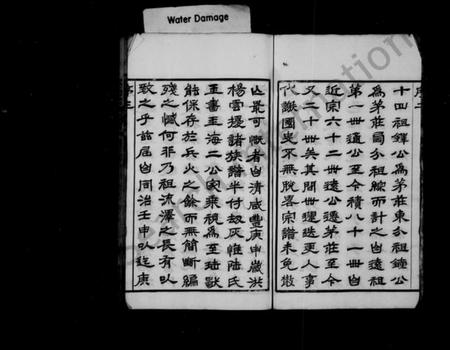 Water Damage
序二
十四祖鐸公為茅莊東分祖鐘公
為茅莊局分祖綜而計之自遠祖
第一世通公至今積八十一世自
近宗六十二世遠公遷茅莊至今
又二十世矣其間世運迭更人事
代謝國史不無脫畧宗譜未免散
亡最可慨者自清咸豐庚申歲洪
楊雲擾諸族譜半付劫灰惟陸氏
玉書玉海二公家乘視為至珍獸
能保存於兵火之餘而無簡斷編
殘之憾何非乃祖流澤之長有以
致之乎茲屆自同治壬申以迄庚
序三